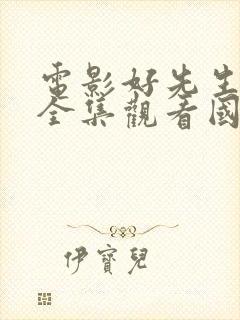 電影好先生
全集觀看國
伊寶兒